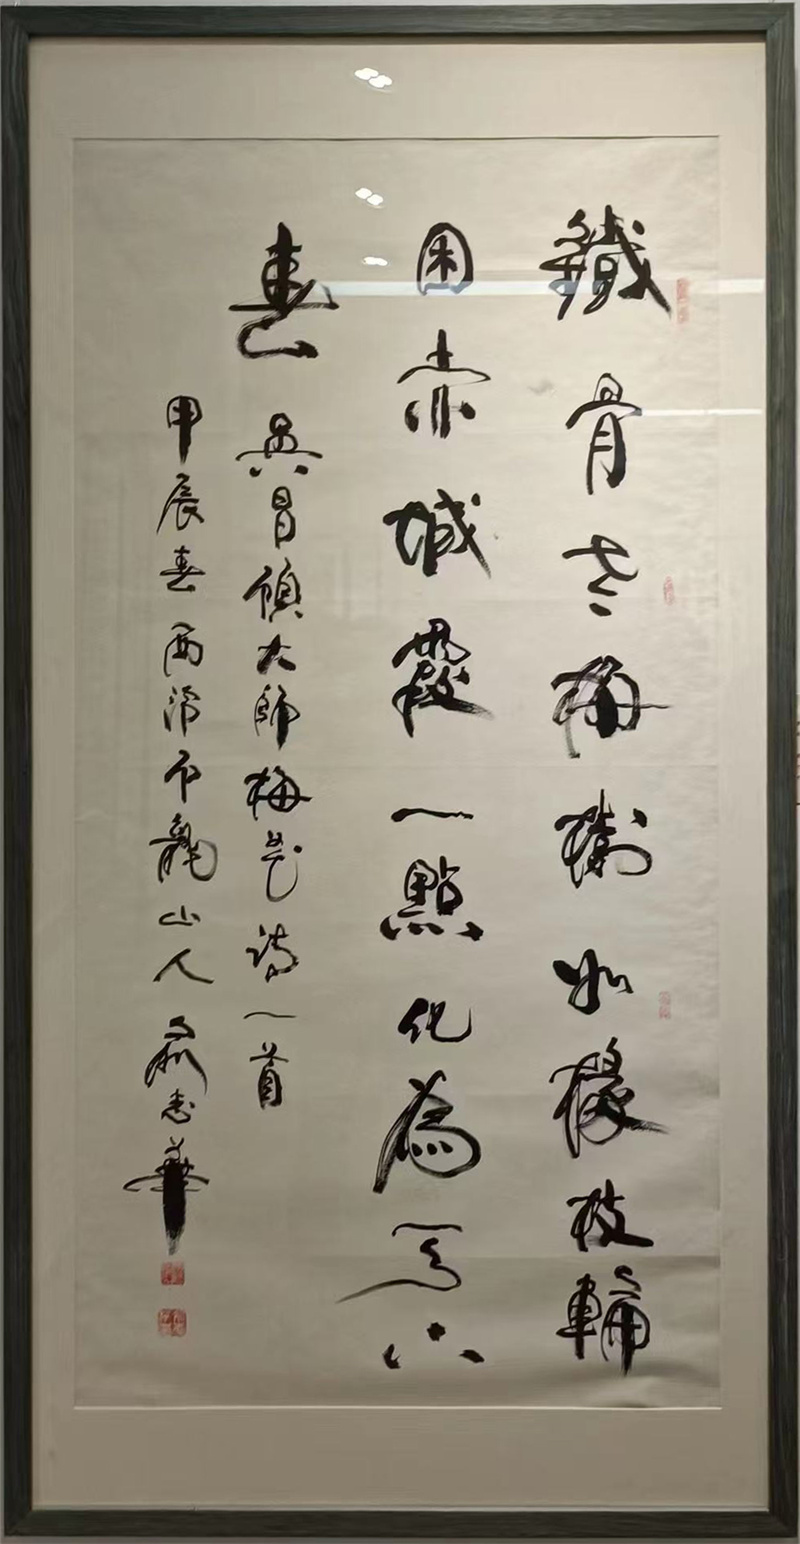 鐵骨老梅樹如椽枝輪
囷赤城霞一點化為天下
春 吳昌碩大師梅花詩一首
甲辰春西泠 龍山人 志華